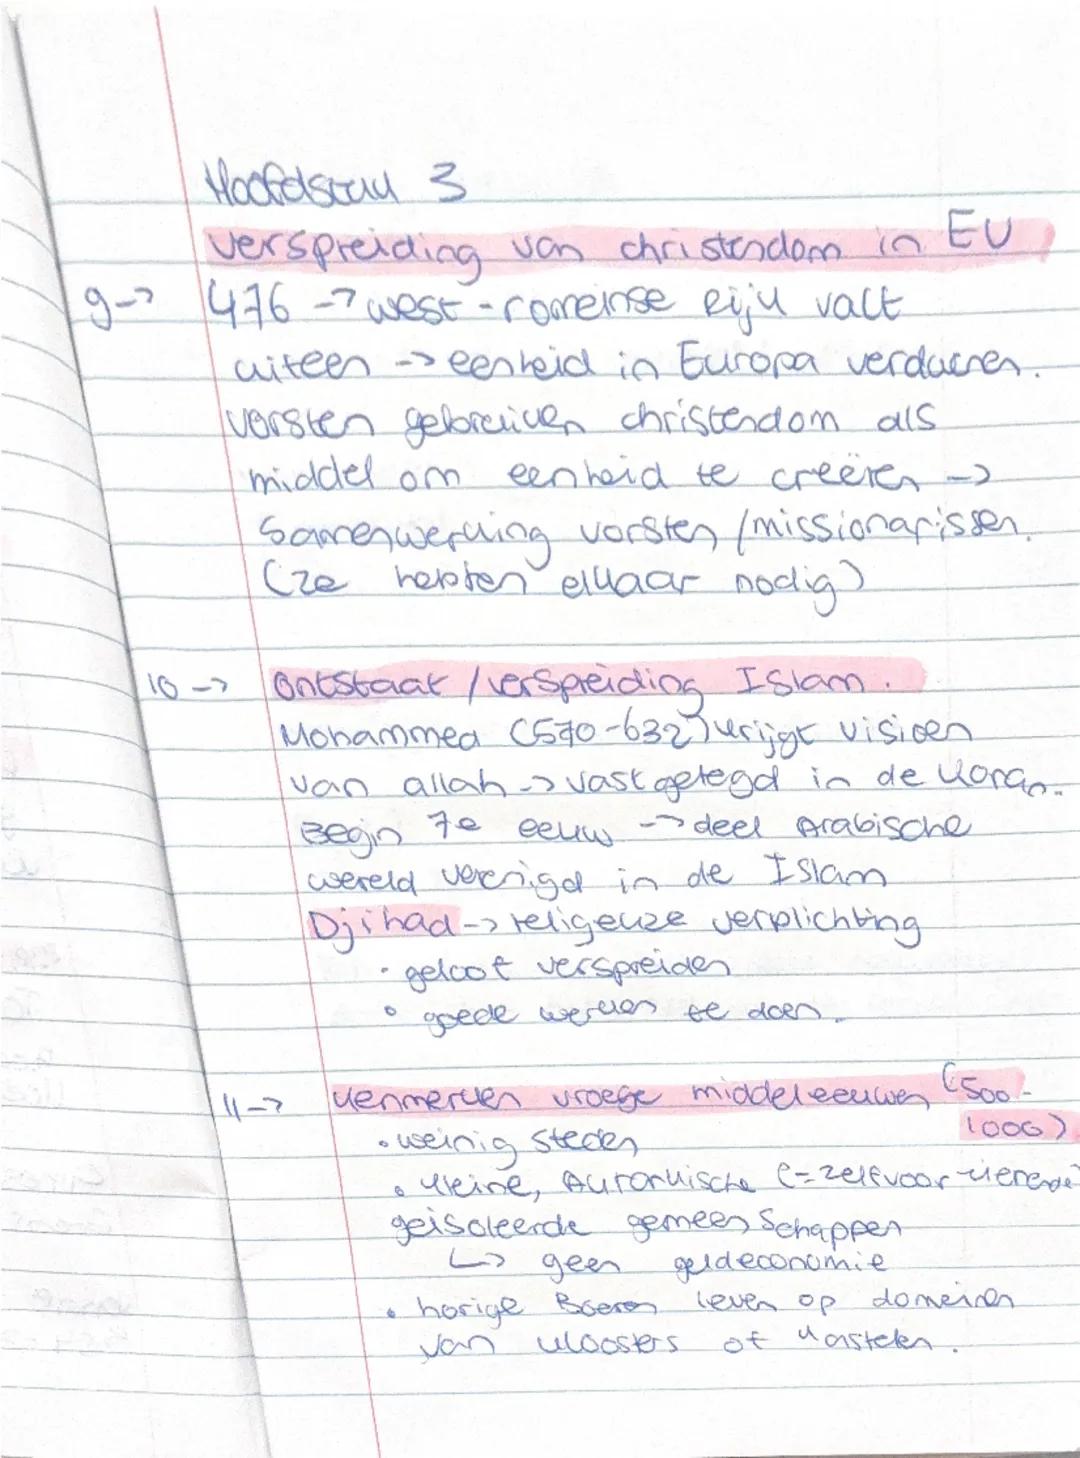 Hoofdstuk 3
verspreiding van christendom in EU
9-> 476 -> west-romeinse rijk valt
uiteen -> eenheid in Europa verdwenen.
vorsten gebruiken christendom als
middel om eenheid te creëren ->
Samenwerking vorsten/missionarissen.
(ze hebben elkaar nodig)
10 -> Ontstaat/verspreiding Islam.
Mohammed (570-632) krijgt visioen
van allah -> vastgelegd in de Koran.
Begin 7e eeuw -> deel Arabische
wereld verenigd in de Islam
Djihad -> religeuze verplichting
• geloof verspreiden
• goede werken te doen.
11-> Kenmerken vroege middeleeuwen (500-
1000)
• weinig steden
• kleine, Autarkische (=zelfvoorzienende)
geisoleerde gemeenschappen
↳ geen geldeconomie
• horige Boeren leven op domeinen
van kloosters of kastelen.